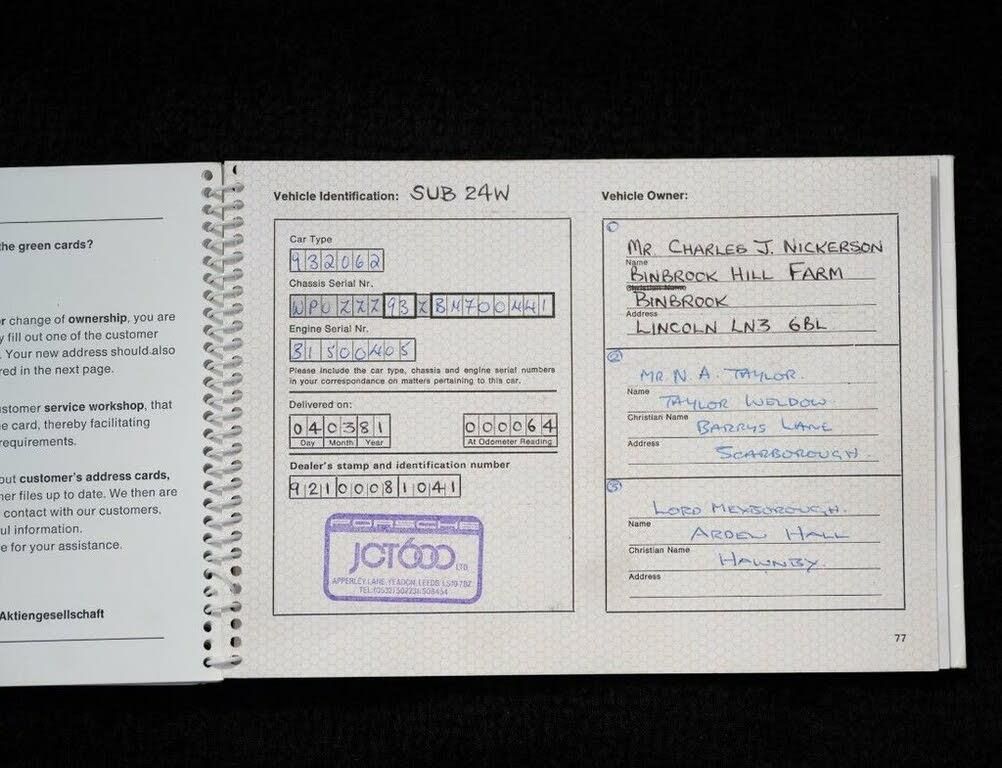 the green cards?
r change of ownership, you are
y fill out one of the customer
. Your new address should also
red in the next page.
ustomer service workshop, that
e card, thereby facilitating
requirements.
out customer's address cards,
ner files up to date. We then are
contact with our customers,
ul information.
e for your assistance.
Aktiengesellschaft
Vehicle Identification: SUB 24W
Car Type
932062
Chassis Serial Nr.
WP0ZZZ93ZBN700441
Engine Serial Nr.
31500405
Please include the car type, chassis and engine serial numbers
in your correspondence on matters pertaining to this car.
Delivered on:
040381 000064
Day Month Year At Odometer Reading
Dealer's stamp and identification number
92100081041
PORSCHE
JCT600 LTD
APPERLEY LANE, YEADON, LEEDS LS19 7BZ
TEL: (0532) 502231/508454
Vehicle Owner:
1
MR CHARLES J. NICKERSON
Name
BINBROOK HILL FARM
Christian Name
BINBROOK
Address
LINCOLN LN3 6BL
2
MR N. A. TAYLOR.
Name
TAYLOR WELDOW
Christian Name
BARRYS LANE
Address
SCARBOROUGH.
3
LORD MEXBOROUGH.
Name
ARDEN HALL
Christian Name
HAWNBY.
Address
77